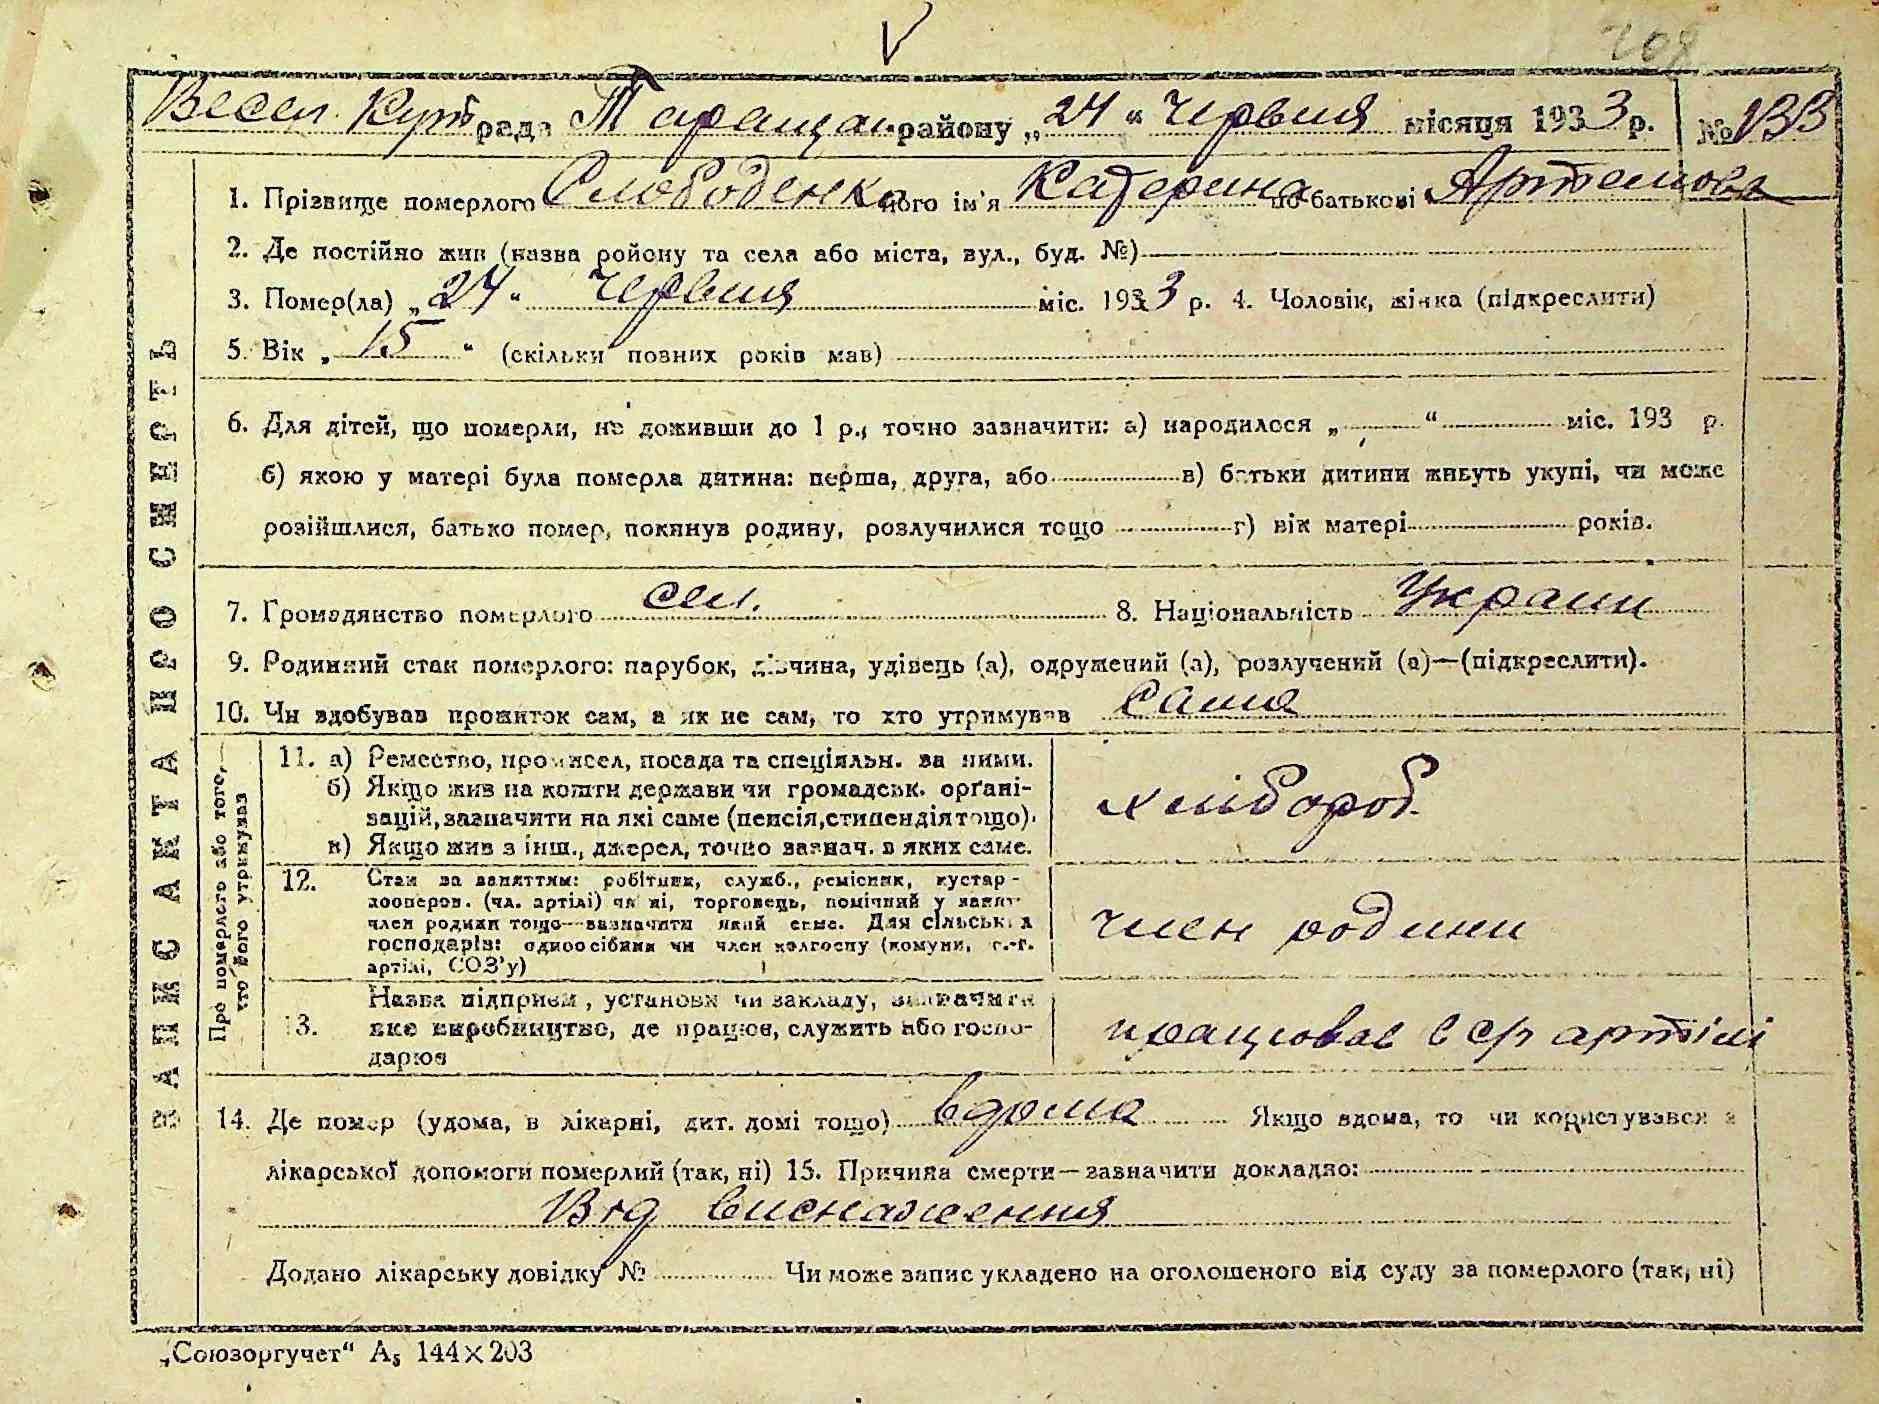 V
208
Весел Кут рада Таращан. району „24“ Червня місяця 1933 р. № 133
ЗАПИС АКТА ПРО СМЕРТЬ
1. Прізвище померлого Слободенко його ім'я Катерина по батькові Артемова
2. Де постійно жив (назва ройону та села або міста, вул., буд. №)
3. Помер(ла) „24“ Червня міс. 1933 р. 4. Чоловік, жінка (підкреслити)
5. Вік „15“ (скільки повних років мав)
6. Для дітей, що померли, не доживши до 1 р., точно зазначити: а) народилося „ “ міс. 193 р.
б) якою у матері була померла дитина: перша, друга, або в) батьки дитини живуть укупі, чи може
розійшлися, батько помер, покинув родину, розлучилися тощо г) вік матері років.
7. Громадянство померлого сел. 8. Національність Украин
9. Родинний стан померлого: парубок, дівчина, удівець (а), одружений (а), розлучений (а)—(підкреслити).
10. Чи здобував прожиток сам, а як не сам, то хто утримував Сама
Про померлого або того, хто його утримував
11. а) Ремество, промисел, посада та спеціяльн. за ними.
б) Якщо жив на кошти держави чи громадськ. орґані-
зацій, зазначити на які саме (пенсія, стипендія тощо).
в) Якщо жив з інш., джерел, точно зазнач. в яких саме.
хлібороб.
12. Стан за заняттям: робітник, служб., ремісник, кустар-
кооперов. (чл. артілі) чи ні, торговець, помічний у занят
член родини тощо—зазначити який саме. Для сільських
господарів: одноосібник чи член колгоспу (комуни, с.-г.
артілі, СОЗ'у)
член родини
13. Назва підприєм, установи чи закладу, зазначити
яке виробництво, де працює, служить або госпо-
дарює
працював в ср артілі
14. Де помер (удома, в лікарні, дит. домі тощо) вдома Якщо вдома, то чи користувався з
лікарської допомоги померлий (так, ні) 15. Причина смерти—зазначити докладно:
Від виснаження
Додано лікарську довідку № Чи може запис укладено на оголошеного від суду за померлого (так, ні)
„Союзоргучет“ А₅ 144×203